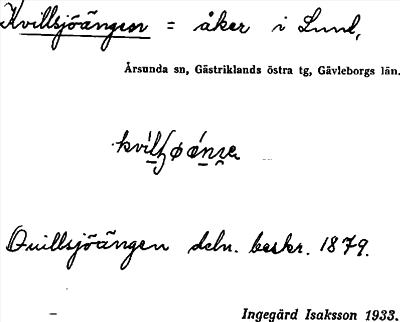 Kvillsjöängen = åker i Lund,
Årsunda sn, Gästriklands östra tg, Gävleborgs län.
Quillsjöängen deln. beskr. 1879.
Ingegärd Isaksson 1933.